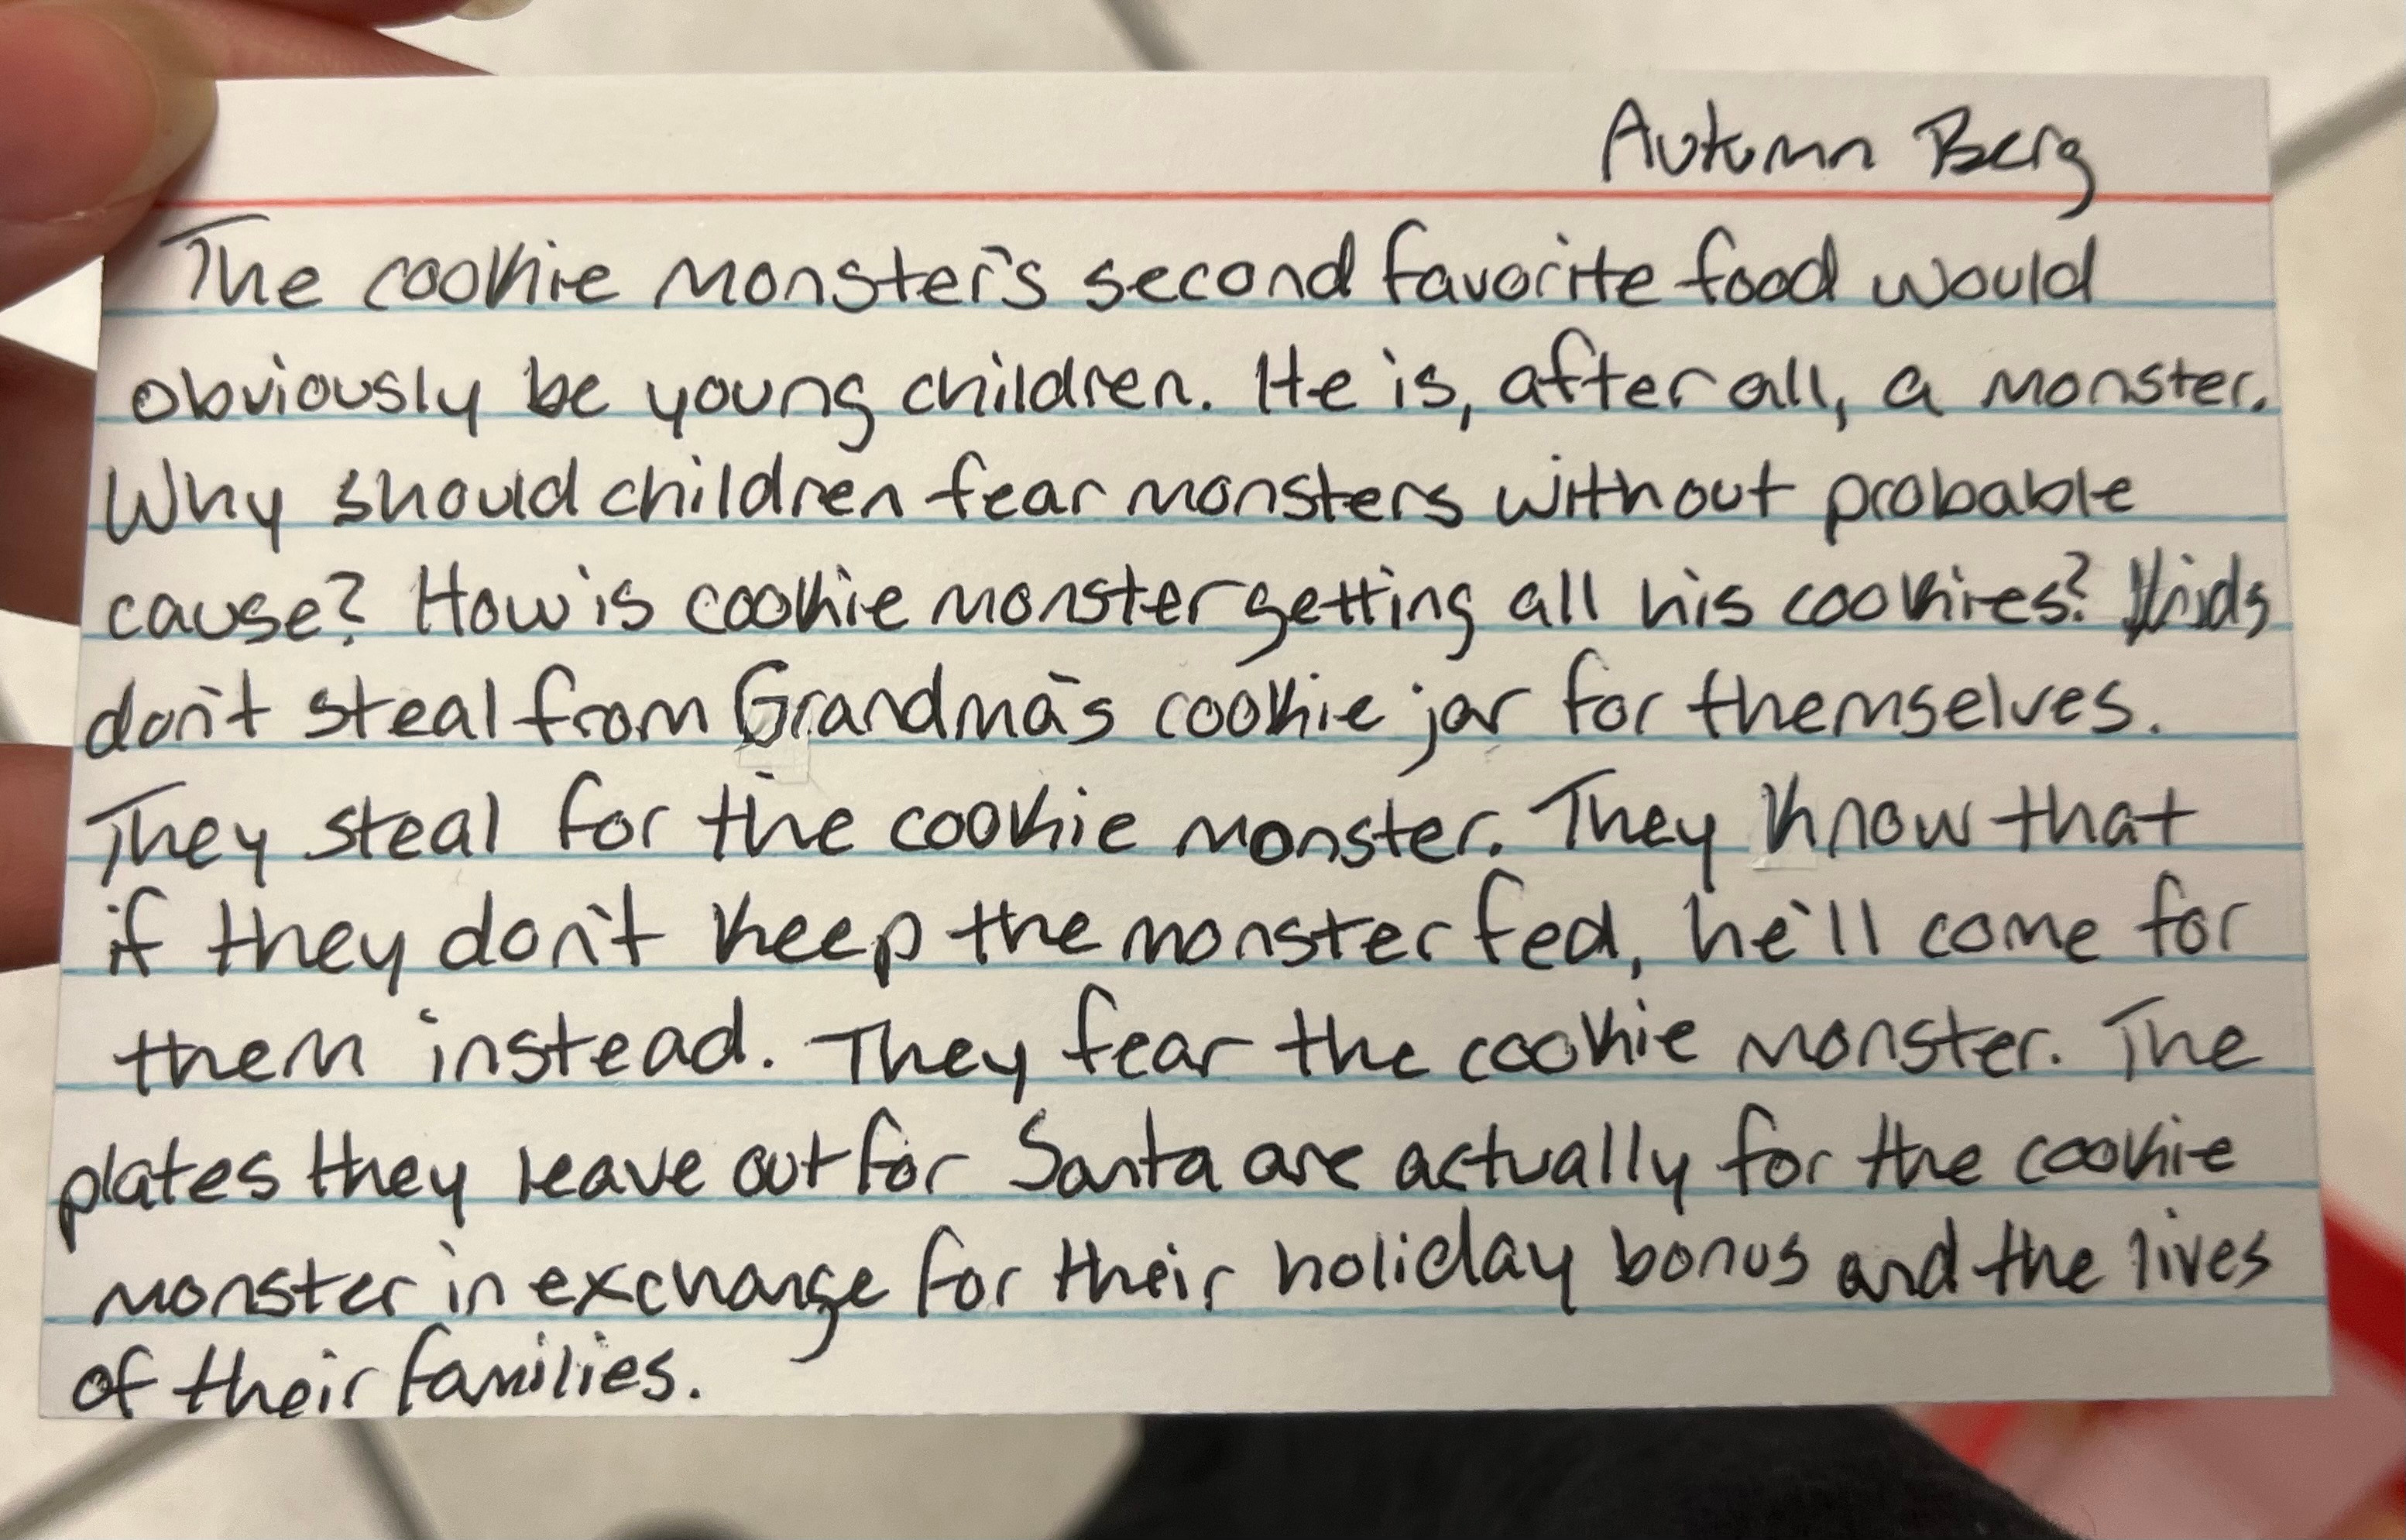 Autumn Berg
The cookie monster's second favorite food would
obviously be young children. He is, after all, a monster.
Why should children fear monsters without probable
cause? How is cookie monster getting all his cookies? Kids
don't steal from Grandma's cookie jar for themselves.
They steal for the cookie monster. They know that
if they don't keep the monster fed, he'll come for
them instead. They fear the cookie monster. The
plates they leave out for Santa are actually for the cookie
monster in exchange for their holiday bonus and the lives
of their families.